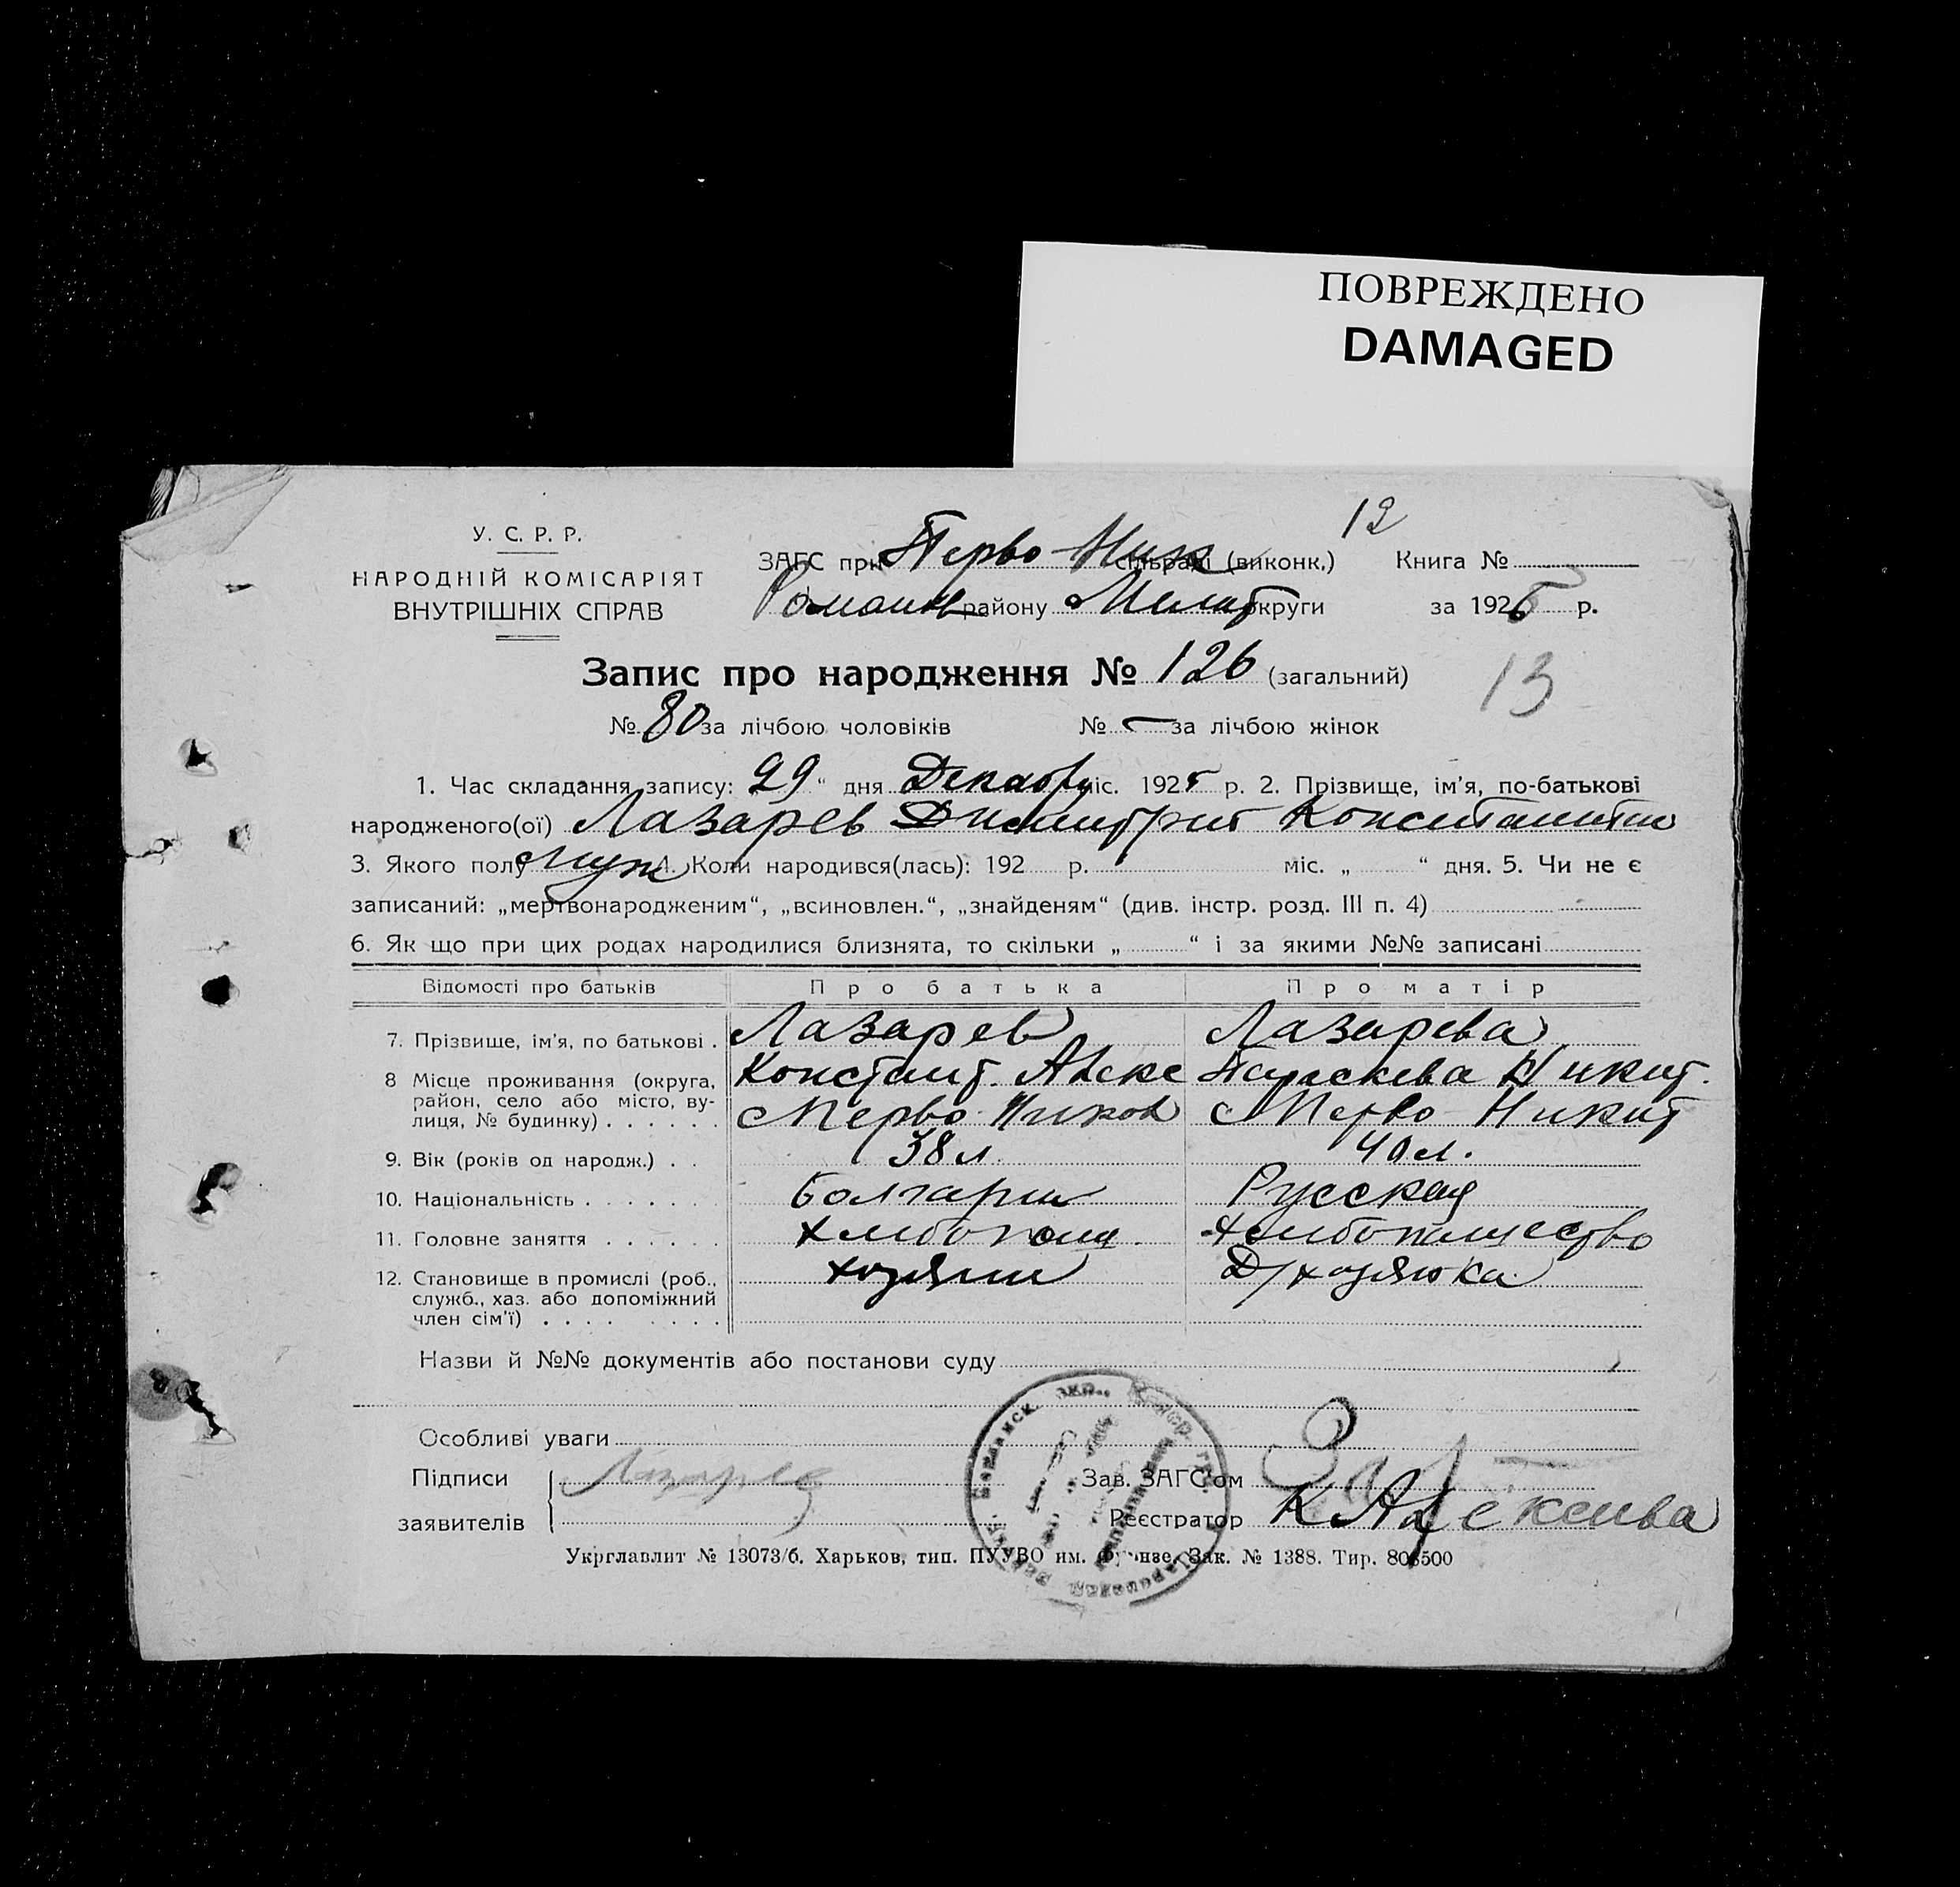 ПОВРЕЖДЕНО
DAMAGED
12
У. С. Р. Р.
НАРОДНІЙ КОМІСАРІЯТ
ВНУТРІШНІХ СПРАВ
ЗАГС при Перво-Ник сільраді (виконк.) Книга №
Романов району Мелит округи за 1925 р.
Запис про народження № 126 (загальний)
13
№ 80 за лічбою чоловіків № — за лічбою жінок
1. Час складання запису: 29 “ дня Декабр міс. 1925 р. 2. Прізвище, ім'я, по-батькові
народженого(ої) Лазарев Димитрит Константин
3. Якого полу муж 4. Коли народився(лась): 192 р. міс. „ “ дня. 5. Чи не є
записаний: „мертвонародженим“, „всиновлен.“, „знайденям“ (див. інстр. розд. III п. 4)
6. Як що при цих родах народилися близнята, то скільки „ “ і за якими №№ записані
Відомості про батьків Про батька Про матір
7. Прізвище, ім'я, по батькові . Лазарев Лазарева
Констант. Алекс Параскева Никит.
8 Місце проживання (округа, район, село або місто, вулиця, № будинку) . . . . . . Перво-Никол Перво-Никит
9. Вік (років од народж.) . . 38 л. 40 л.
10. Національність . . . . . . Болгарин Русская
11. Головне заняття . . . . . . хлебопаш. хлебопашество
12. Становище в промислі (роб., служб., хаз. або допоміжний член сім'ї) . . . . . . . . хозяин Д/хозяюка
Назви й №№ документів або постанови суду
Особливі уваги
Підписи Лазарев Зав. ЗАГС'ом
заявителів Реєстратор К Алексиева
Укрглавлит № 13073/б. Харьков, тип. ПУУВО им. Фрунзе. Зак. № 1388. Тир. 803500